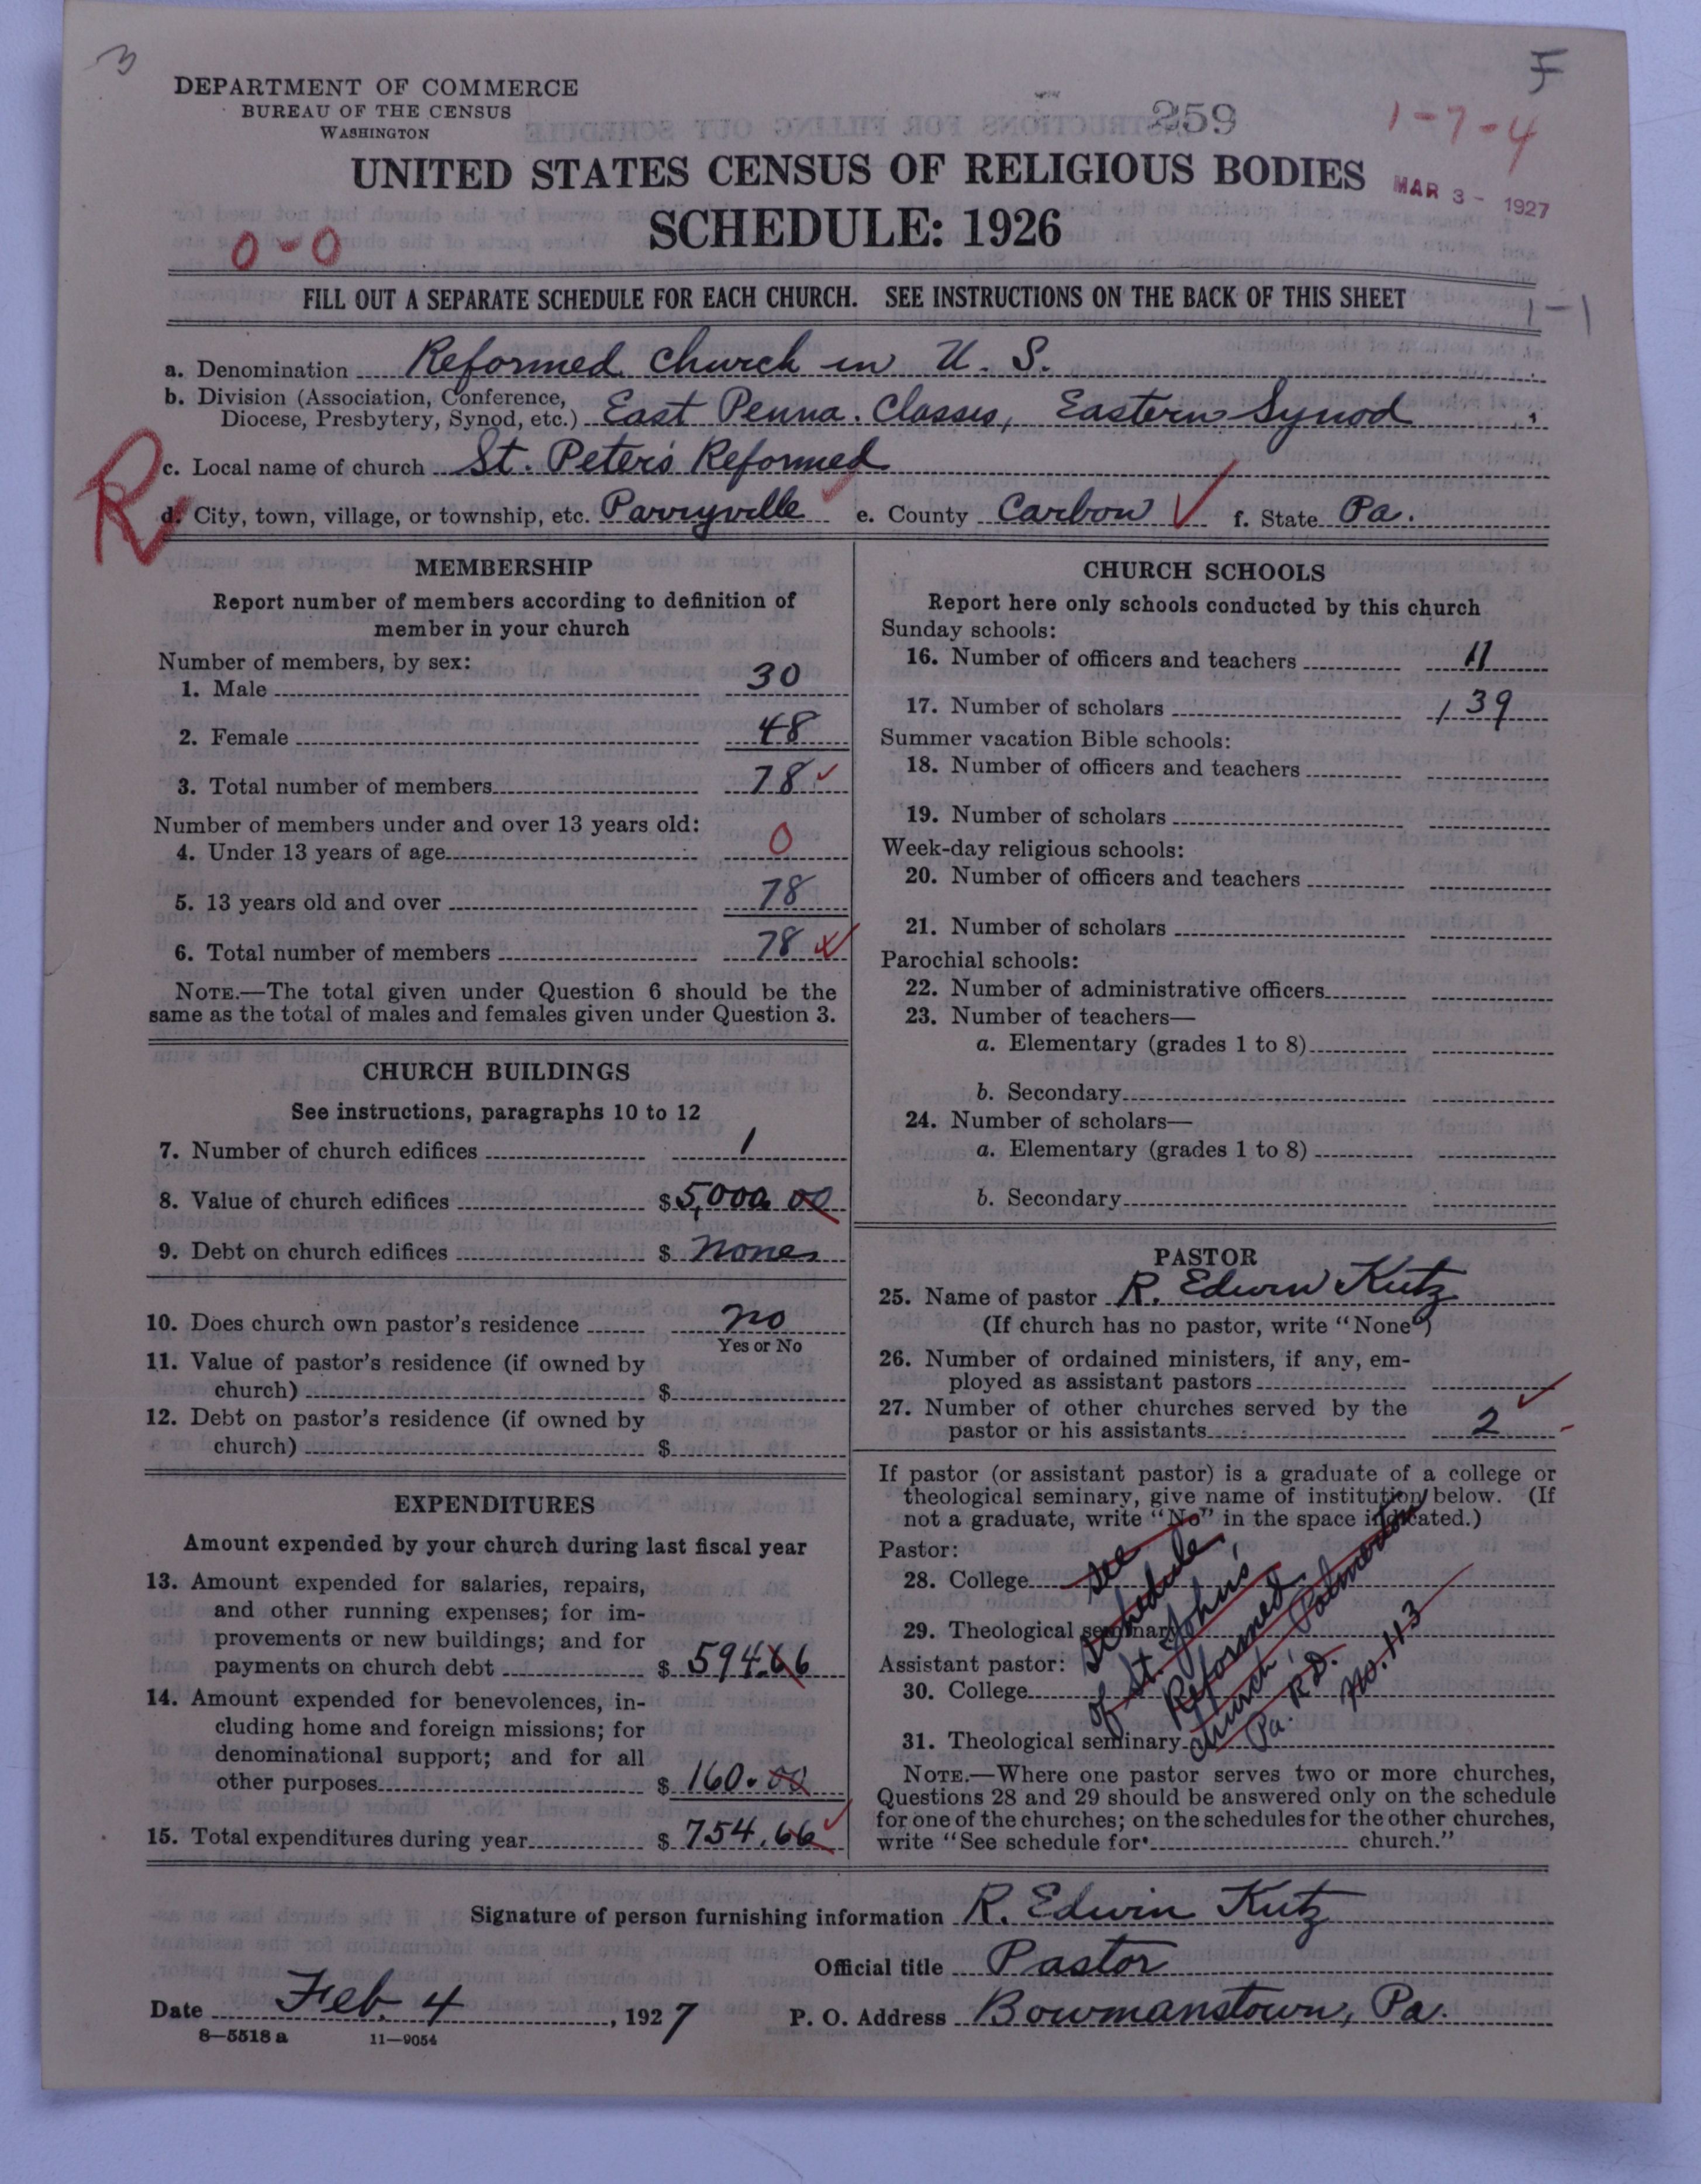 3
F
DEPARTMENT OF COMMERCE
BUREAU OF THE CENSUS
WASHINGTON
259
1-7-4
UNITED STATES CENSUS OF RELIGIOUS BODIES
MAR 3 - 1927
SCHEDULE: 1926
0-0
FILL OUT A SEPARATE SCHEDULE FOR EACH CHURCH. SEE INSTRUCTIONS ON THE BACK OF THIS SHEET
1-1
a. Denomination Reformed Church in U. S.
b. Division (Association, Conference, Diocese, Presbytery, Synod, etc.) East Penna. Classes, Eastern Synod
R
c. Local name of church St. Peter's Reformed
d. City, town, village, or township, etc. Parryville e. County Carbon f. State Pa.
MEMBERSHIP
Report number of members according to definition of
member in your church
Number of members, by sex:
1. Male 30
2. Female 48
3. Total number of members 78
Number of members under and over 13 years old:
4. Under 13 years of age 0
5. 13 years old and over 78
6. Total number of members 78
NOTE.—The total given under Question 6 should be the
same as the total of males and females given under Question 3.
CHURCH BUILDINGS
See instructions, paragraphs 10 to 12
7. Number of church edifices 1
8. Value of church edifices $5,000.00
9. Debt on church edifices $ none
10. Does church own pastor's residence no
Yes or No
11. Value of pastor's residence (if owned by
church) $
12. Debt on pastor's residence (if owned by
church) $
EXPENDITURES
Amount expended by your church during last fiscal year
13. Amount expended for salaries, repairs,
and other running expenses; for im-
provements or new buildings; and for
payments on church debt $ 594.66
14. Amount expended for benevolences, in-
cluding home and foreign missions; for
denominational support; and for all
other purposes $ 160.00
15. Total expenditures during year $ 754.66
CHURCH SCHOOLS
Report here only schools conducted by this church
Sunday schools:
16. Number of officers and teachers 11
17. Number of scholars 139
Summer vacation Bible schools:
18. Number of officers and teachers
19. Number of scholars
Week-day religious schools:
20. Number of officers and teachers
21. Number of scholars
Parochial schools:
22. Number of administrative officers
23. Number of teachers—
a. Elementary (grades 1 to 8)
b. Secondary
24. Number of scholars—
a. Elementary (grades 1 to 8)
b. Secondary
PASTOR
25. Name of pastor R. Edwin Kutz
(If church has no pastor, write "None")
26. Number of ordained ministers, if any, em-
ployed as assistant pastors
27. Number of other churches served by the
pastor or his assistants 2
If pastor (or assistant pastor) is a graduate of a college or
theological seminary, give name of institution below. (If
not a graduate, write "No" in the space indicated.)
Pastor:
28. College
29. Theological seminary
Assistant pastor:
30. College
31. Theological seminary
See
schedule
of St. John's
Reformed
Church, Palmerton
Pa. R.D.
No. 113
NOTE.—Where one pastor serves two or more churches,
Questions 28 and 29 should be answered only on the schedule
for one of the churches; on the schedules for the other churches,
write "See schedule for church."
Signature of person furnishing information R. Edwin Kutz
Official title Pastor
Date Feb. 4, 1927 P. O. Address Bowmanstown, Pa.
8—5518 a 11—9054